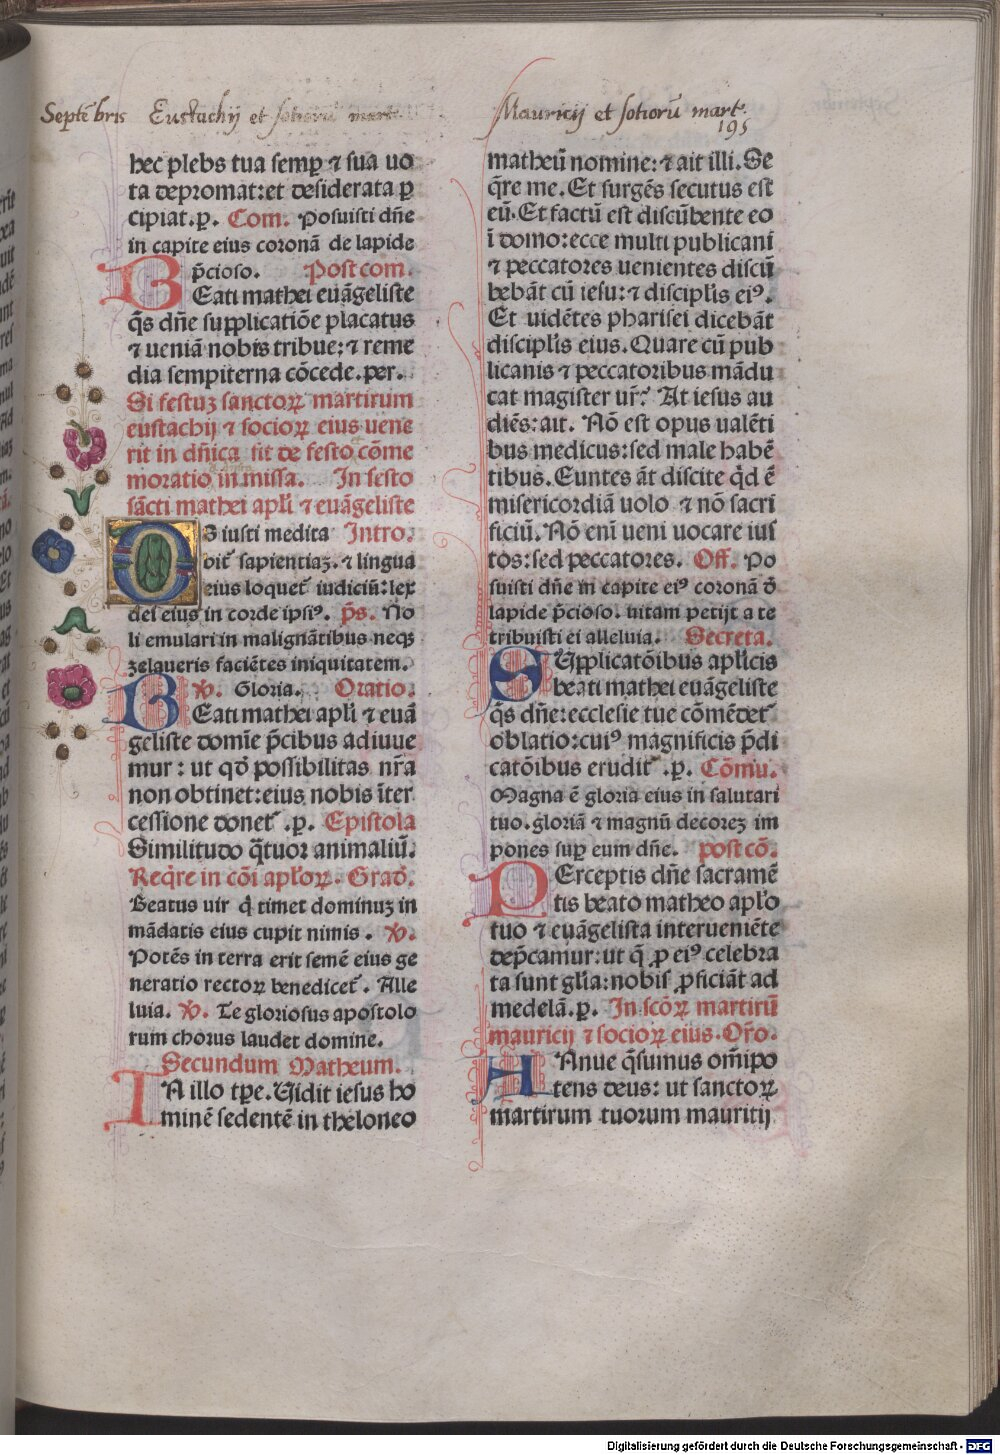 Septẽbris Eustachij et sotiorũ mart.
Mauricij et sotiorũ mart.
195
hec plebs tua semꝑ ⁊ sua uo
ta depromat: et desiderata ꝑ
cipiat. p. Com. Posuisti dñe
in capite eius coronã de lapide
p̃cioso. Post com.
BEati mathei euãgeliste
q̃s dñe supplicatiõe placatus
⁊ ueniã nobis tribue: ⁊ reme
dia sempiterna cõcede. per.
Si festuꝫ sanctoꝝ martirum
eustachij ⁊ socioꝝ eius uene
rit in dñica fit de festo cõme
moratio in missa. In festo
sãcti mathei apl̃i ⁊ euãgeliste
OS iusti medita Intro.
bit̃ sapientiaꝫ. ⁊ lingua
eius loquet̃ iudiciũ: lex
dei eius in corde ipsiꝰ. p̃s. No
li emulari in malignãtibus neqꝫ
zelaueris faciẽtes iniquitatem.
℣. Gloria. Oratio.
BEati mathei apl̃i ⁊ euã
geliste domĩe p̃cibus adiuue
mur: ut qd̃ possibilitas nr̃a
non obtinet: eius nobis ĩter
cessione donet̃. p. Epistola
Similitudo q̃tuor animaliũ.
Req̃re in cõi apl̃oꝝ. Grad̃.
Beatus uir q̃ timet dominuꝫ in
mãdatis eius cupit nimis. ℣.
Potẽs in terra erit semẽ eius ge
neratio rectoꝝ benedicet̃. Alle
luia. ℣. Te gloriosus apostolo
rum chorus laudet domine.
Secundum Matheum.
IN illo tp̃e. Uidit iesus ho
minẽ sedentẽ in theloneo
matheũ nomine: ⁊ ait illi. Se
q̃re me. Et surgẽs secutus est
eũ. Et factũ est discũbente eo
ĩ domo: ecce multi publicani
⁊ peccatores uenientes discũ
bebãt cũ iesu: ⁊ discipl̃is eiꝰ.
Et uidẽtes pharisei dicebãt
discipl̃is eius. Quare cũ pub
licanis ⁊ peccatoribus mãdu
cat magister ur̃? At iesus au
diẽs: ait. Nõ est opus ualẽti
bus medicus: sed male habẽ
tibus. Euntes ãt discite q̃d ẽ
misericordiã uolo ⁊ nõ sacri
ficiũ. Nõ enĩ ueni uocare ius
tos: sed peccatores. Off. Po
suisti dñe in capite eiꝰ coronã d̃
lapide p̃cioso. uitam petijt a te
tribuisti ei alleluia. Secreta.
SUpplicatõibus apl̃icis
beati mathei euãgeliste
q̃s dñe: ecclesie tue cõmẽdet̃
oblatio: cuiꝰ magnificis p̃di
catõibus erudit̃. p. Cõmu.
Magna ẽ gloria eius in salutari
tuo. gloriã ⁊ magnũ decoreꝫ im
pones suꝑ eum dñe. post cõ.
PErceptis dñe sacramẽ
tis beato matheo apl̃o
tuo ⁊ euãgelista interueniẽte
dep̃camur: ut q̃ ꝓ eiꝰ celebra
ta sunt gl̃ia: nobis ꝓficiãt ad
medelã. p. In scõꝝ martirũ
mauricij ⁊ socioꝝ eius. Or̃o.
ANnue q̃sumus om̃ipo
tens deus: ut sanctoꝝ
martirum tuorum mauritij
Digitalisierung gefördert durch die Deutsche Forschungsgemeinschaft - DFG